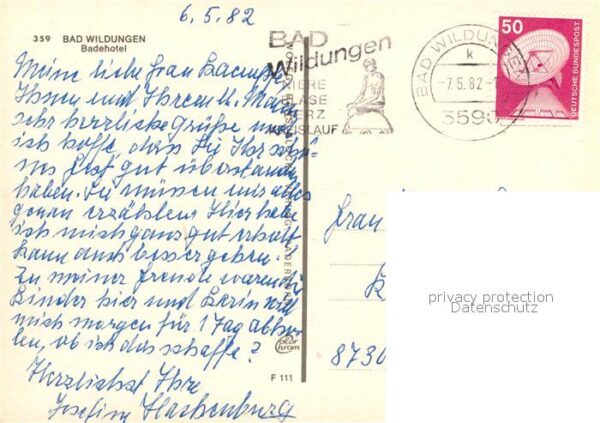 6.5.82
359 BAD WILDUNGEN
Badehotel
Meine liebe Frau
Ihnen und Ihrem lb.
sehr herzliche Grüße und
ich hoffe, dass Sie Ihr schö-
nes Fest gut überstanden
haben. Sie müssen mir alles
genau erzählen. Hier habe
ich mich ganz gut erholt
kann auch besser gehen.
Zu meiner Freude waren die
Kinder hier und will
mich morgen für 1 Tag abho-
len, ob ich das schaffe?
Herzlichst Ihre
Josefine Hachenburg
color
chrom
F 111
BAD
Wildungen
NIERE
BLASE
HERZ
KREISLAUF
BAD WILDUNGEN
k
-7.5.82-
3590
50
DEUTSCHE BUNDESPOST
Frau
8730
privacy protection
Datenschutz